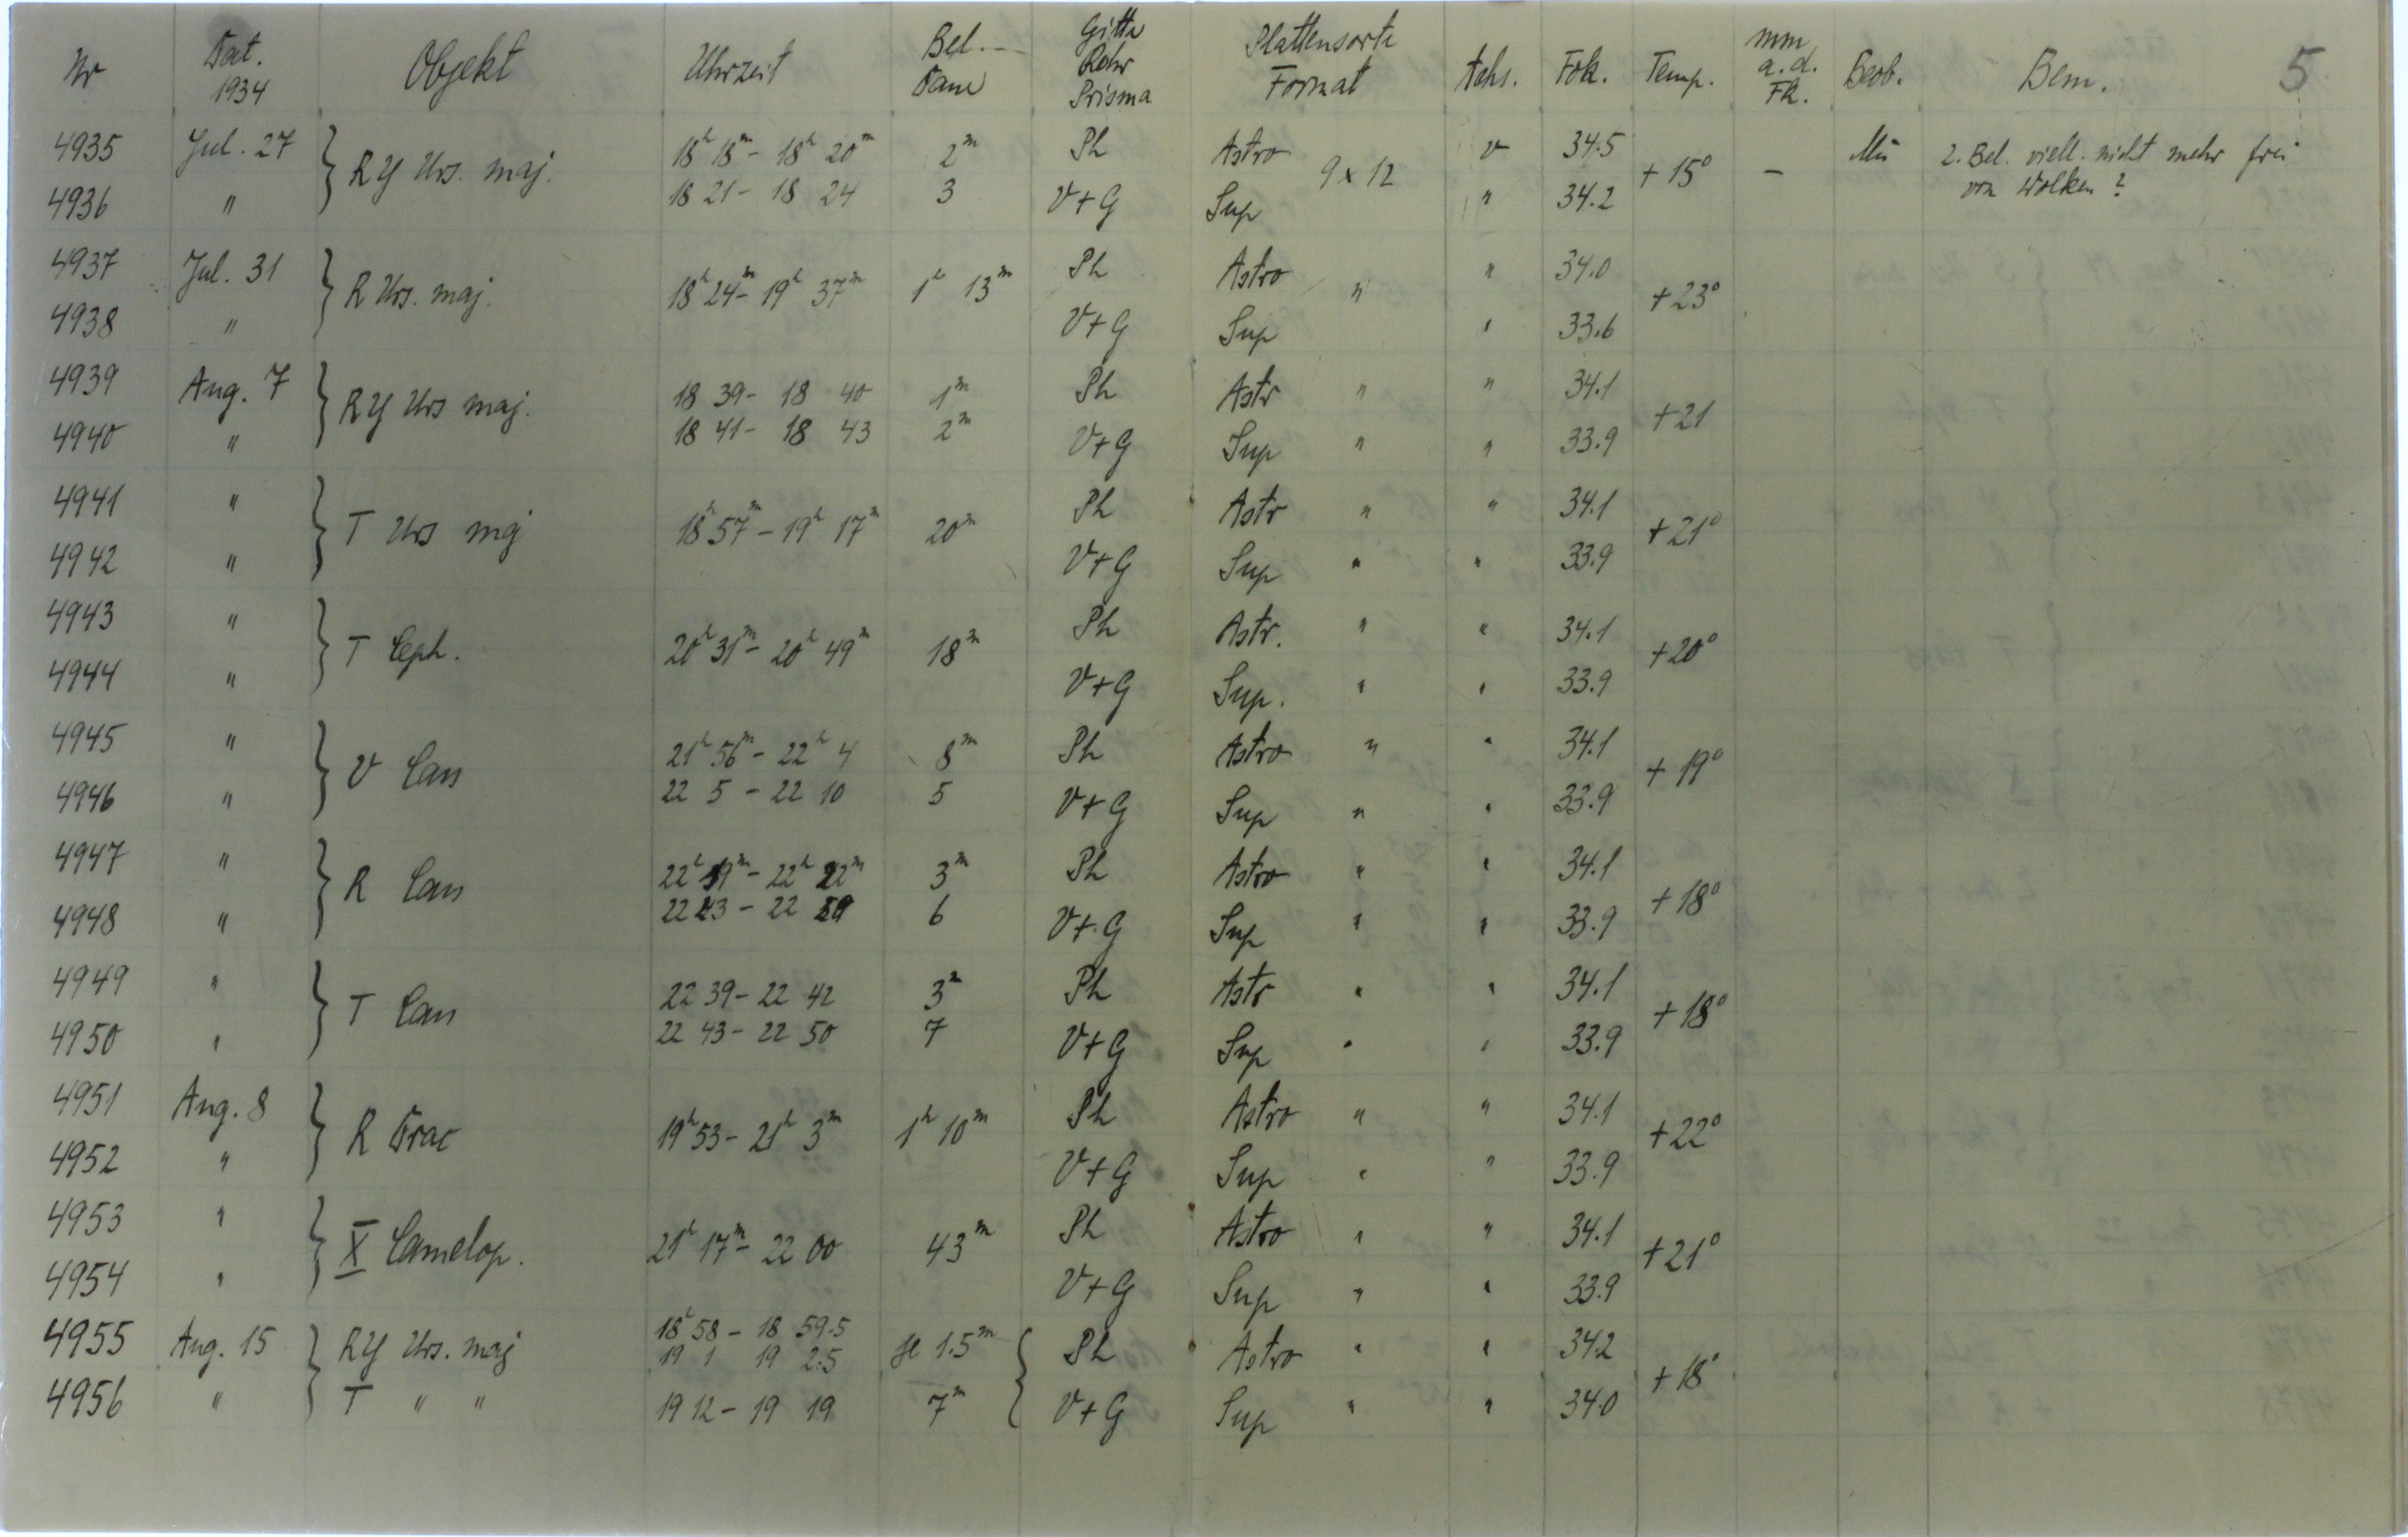 Nr Dat. 1934 Objekt Uhrzeit Bel.- Dauer Gitter Rohr Prisma Plattensorte Format Aufn. Fok. Temp. mm a.d. Fk. Beob. Bem. 5
4935 Jul. 27 } RY Urs. maj. 18h 18m - 18h 20m 2m Ph Astro 9 x 12 v 34.5 + 15° - Mü 2. Bel. viell. nicht mehr frei
4936 " 18 21 - 18 24 3 V+G Sup " 34.2 von Wolken ?
4937 Jul. 31 } R Urs. maj. 18h 24m - 19h 37m 1h 13m Ph Astro " " 34.0 + 23°
4938 " V+G Sup " 33.6
4939 Aug. 7 } RY Urs maj. 18 39 - 18 40 1m Ph Astr " " 34.1 + 21
4940 " 18 41 - 18 43 2m V+G Sup " " 33.9
4941 " } T Urs maj 18h 57m - 19h 17m 20m Ph Astr " " 34.1 + 21°
4942 " V+G Sup " " 33.9
4943 " } T Ceph. 20h 31m - 20h 49m 18m Ph Astr. " " 34.1 + 20°
4944 " V+G Sup. " " 33.9
4945 " } V Cass 21h 56m - 22h 4 8m Ph Astro " " 34.1 + 19°
4946 " 22 5 - 22 10 5 V+G Sup " " 33.9
4947 " } R Cass 22h 19m - 22h 22m 3m Ph Astro " " 34.1 + 18°
4948 " 22 23 - 22 29 6 V+G Sup " " 33.9
4949 " } T Cass 22 39 - 22 42 3m Ph Astr " " 34.1 + 18°
4950 " 22 43 - 22 50 7 V+G Sup " " 33.9
4951 Aug. 8 } R Drac 19h 53 - 21h 3m 1h 10m Ph Astro " " 34.1 + 22°
4952 " V+G Sup " " 33.9
4953 " } X Camelop. 21h 17m - 22 00 43m Ph Astro " " 34.1 + 21°
4954 " V+G Sup " " 33.9
4955 Aug. 15 } RY Urs. maj 18h 58 - 18 59.5 je 1.5m { Ph Astro " " 34.2 + 18°
19 1 19 2.5
4956 " T " " 19 12 - 19 19 7m V+G Sup " " 34.0